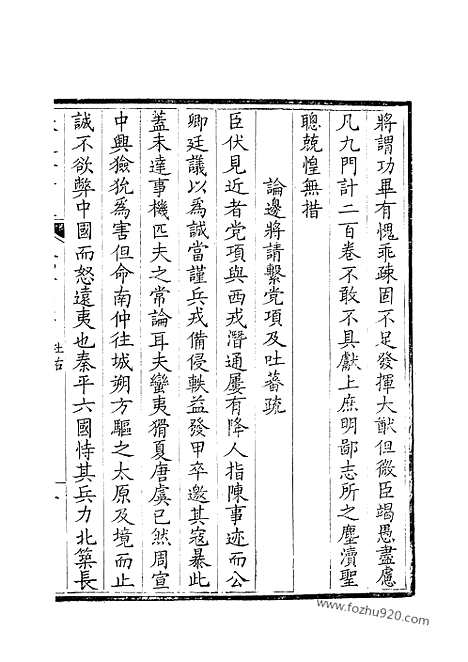 將謂功畢有愧乖疎固不足發揮大猷但微臣竭愚盡慮
凡九門計二百卷不敢不具獻上庶明鄙志所之塵瀆聖
聰兢惶無措
論邊將請繫党項及吐蕃疏
臣伏見近者党項與西戎潛通屢有降人指陳事迹而公
卿廷議以爲誠當謹兵戎備侵軼益發甲卒邀其寇暴此
蓋未達事機匹夫之常論耳夫蠻夷猾夏唐虞已然周宣
中興獫狁爲害但命南仲往城朔方驅之太原及境而止
誠不欲弊中國而怒遠夷也秦平六國恃其兵力北築長
杜佑
www.fozhu920.com